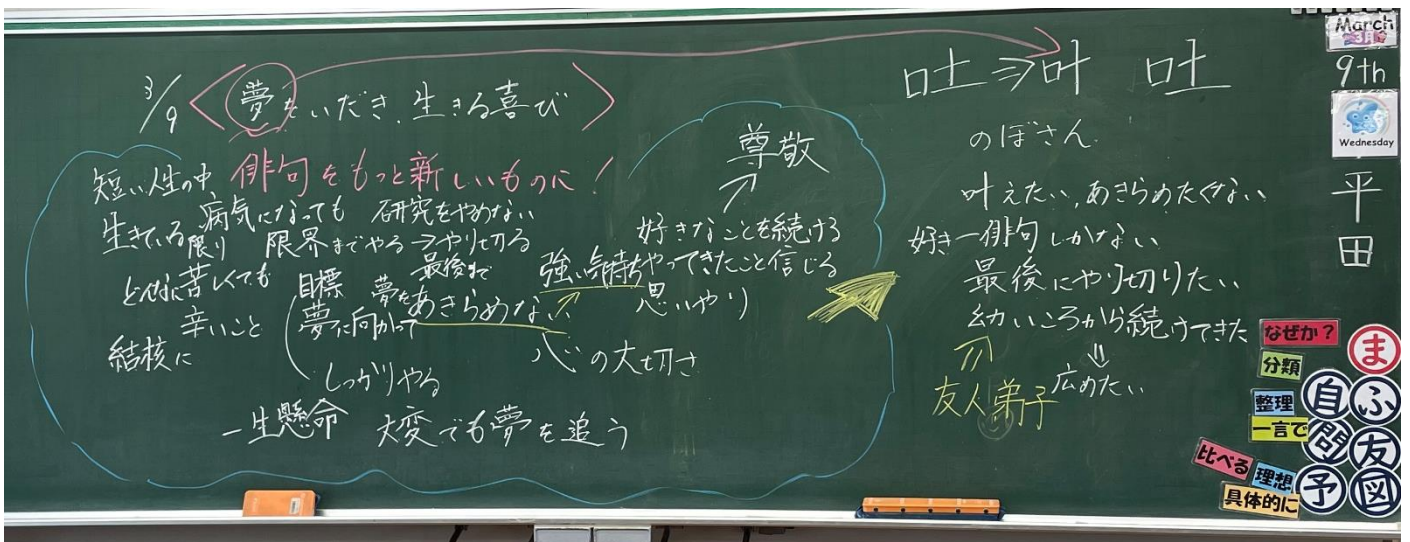 3/9
夢をいだき、生きる喜び
短い人生の中
俳句をもっと新しいものに！
生きている限り
病気になっても
研究をやめない
限界までやる→やり切る
どんなに苦しくても
辛いこと
結核に
目標
夢に向かって
しっかりやる
最後まで
夢をあきらめない
強い気持ち
心の大切さ
一生懸命
大変でも夢を追う
尊敬
好きなことを続ける
やってきたこと信じる
思いやり
吐⇒叶 吐
のぼさん
叶えたい,あきらめたくない
好き―俳句しかない
最後にやり切りたい
幼いころから続けてきた
⇓
広めたい
友人弟子
March
3月
9th
Wednesday
平
田
なぜか?
分類
整理
一言で
比べる
理想
具体的に
ま
自
ふ
問
友
予
図